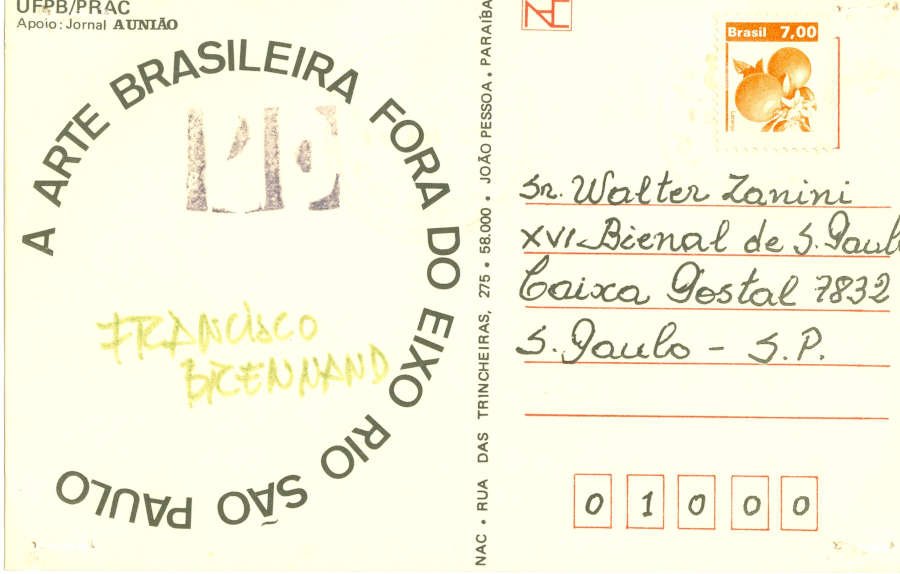 UFPB/PRAC
Apoio: Jornal A UNIÃO
A ARTE BRASILEIRA FORA DO EIXO RIO SÃO PAULO
PE
FRANCISCO
BRENNAND
NAC • RUA DAS TRINCHEIRAS, 275 • 58.000 • JOÃO PESSOA • PARAÍBA
Brasil 7,00
Sr. Walter Zanini
XVI Bienal de S. Paulo
Caixa Postal 7832
S. Paulo - S.P.
0 1 0 0 0